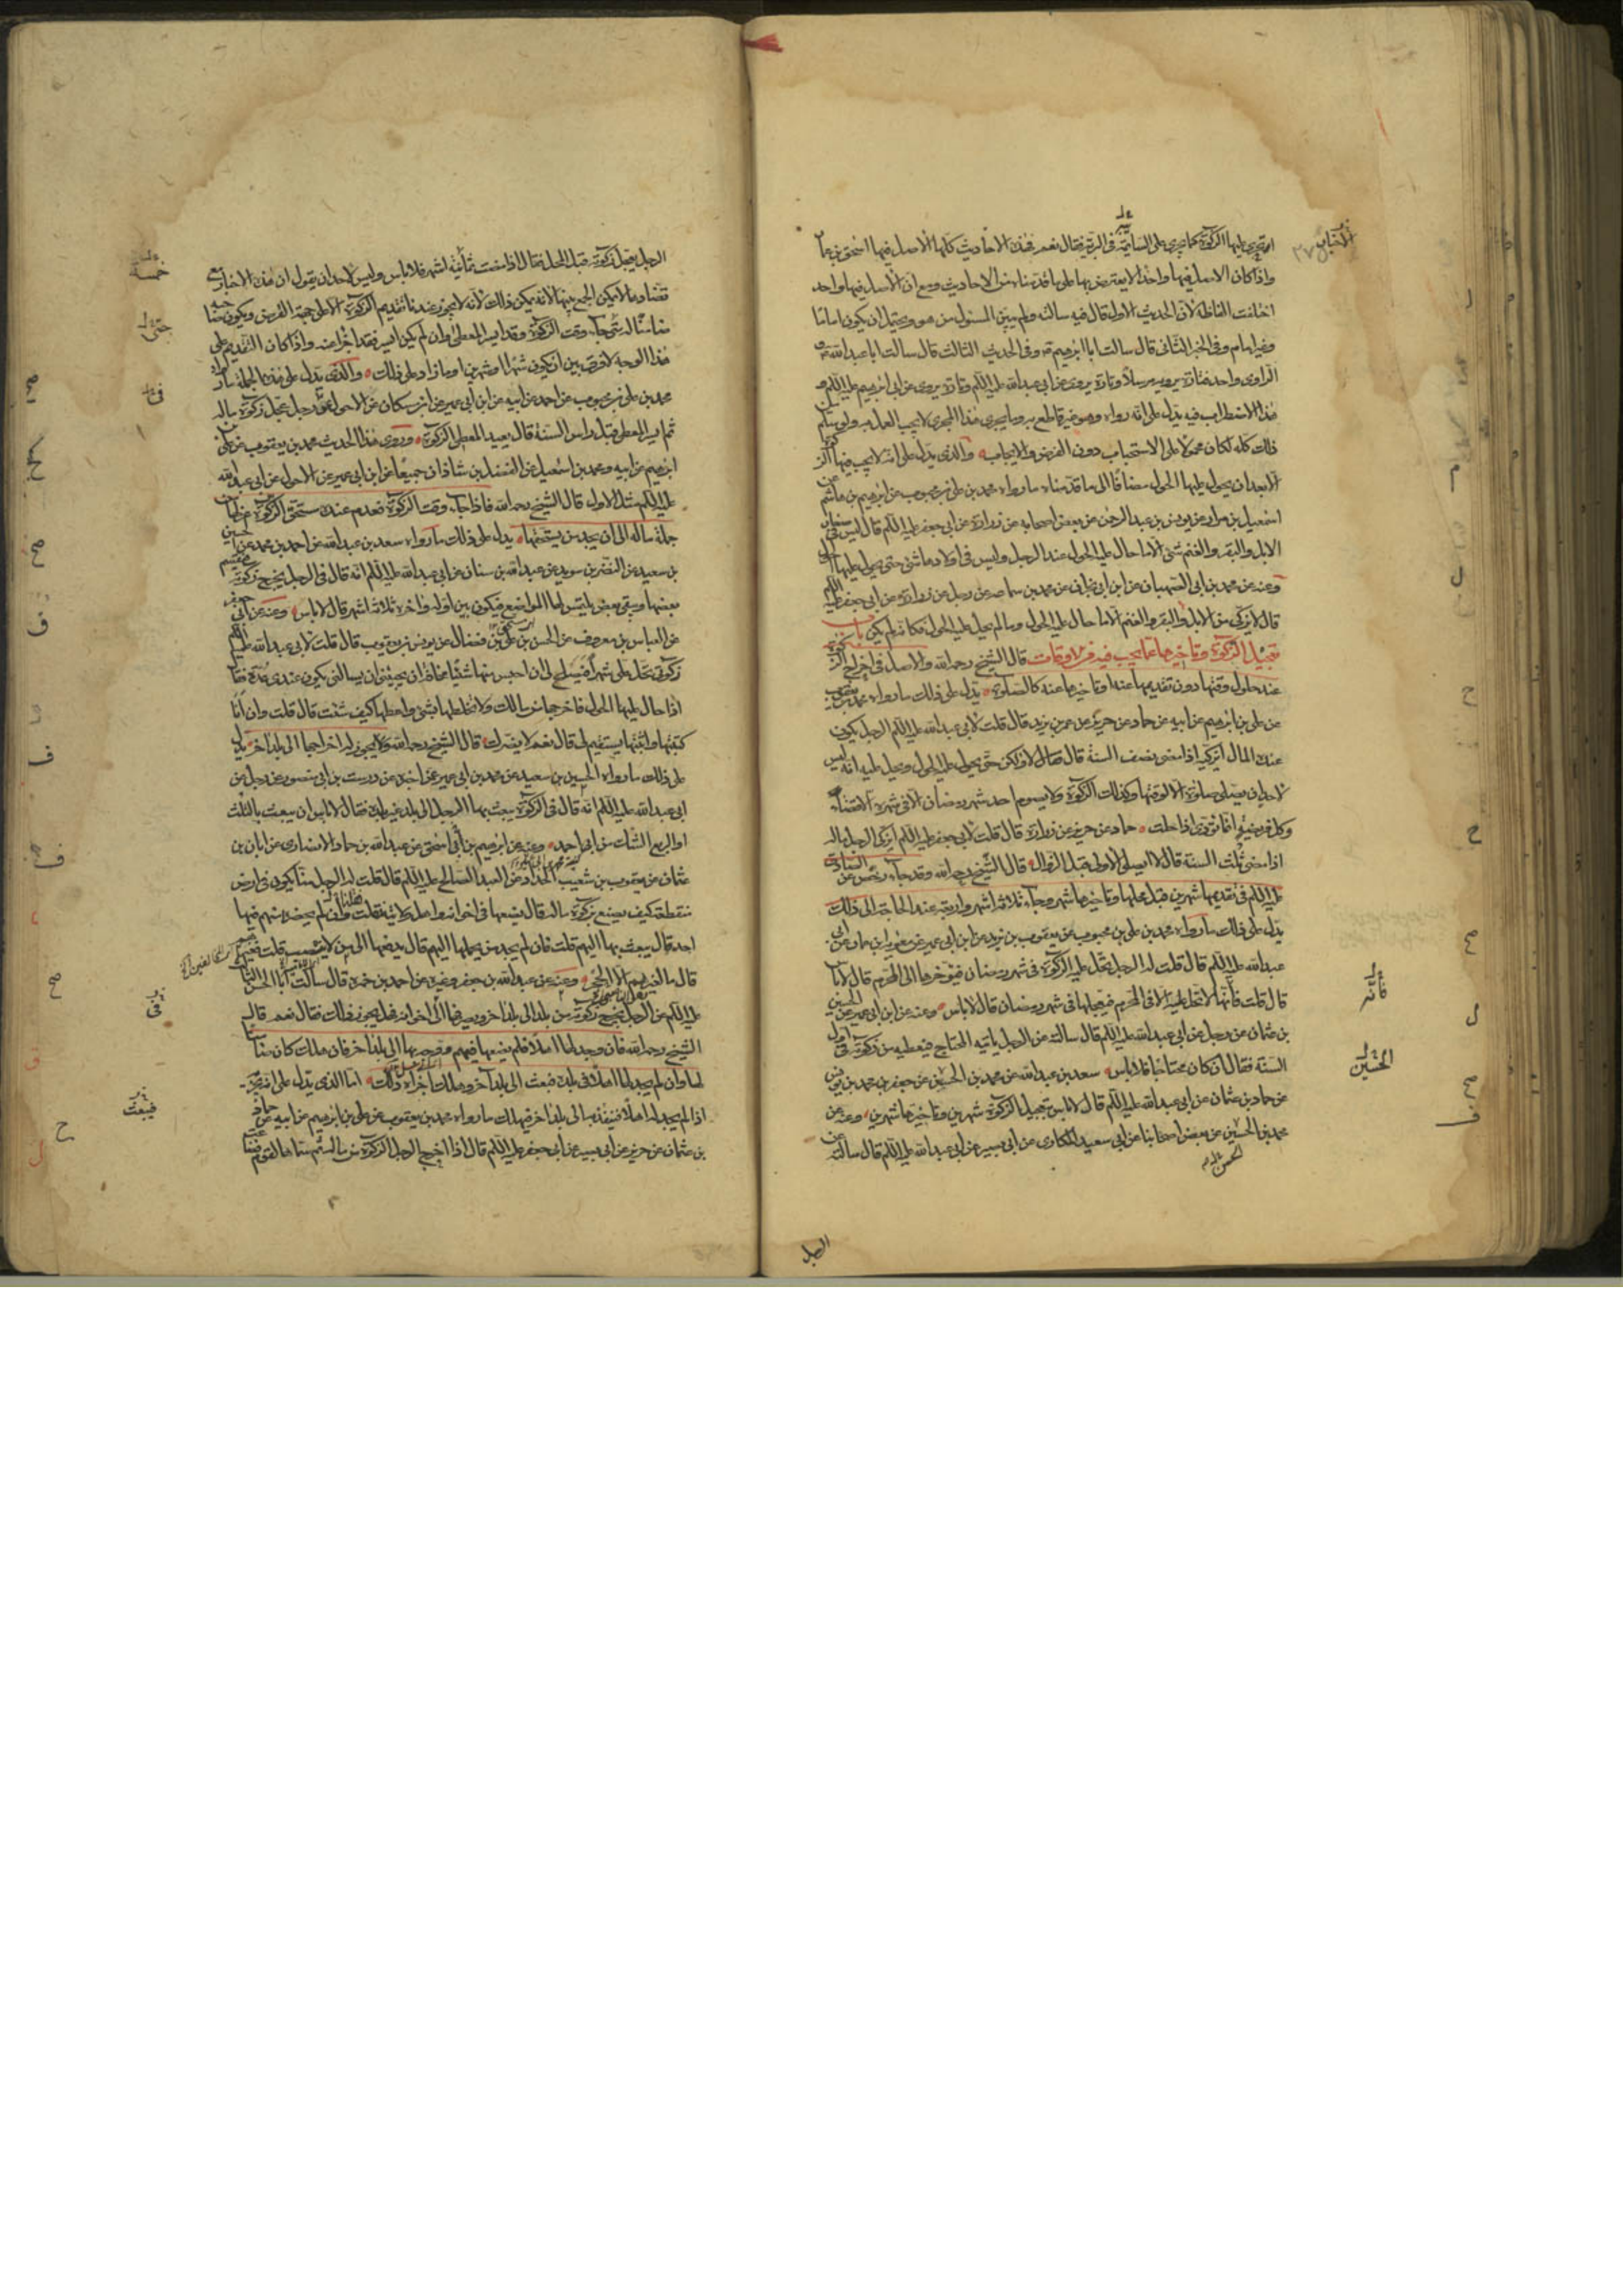 اتجري عليها الزكوة كما تجري على السائمة في البرية فقال نعم فهذه الاحاديث كلها الاصل فيها اسحق بن عمار
واذا كان الاصل فيها واحدا لا يعترض بها على ما قدمناه من الاحاديث ومع ان الاصل فيها واحد
اختلفت الفاظه لان الحديث الاول قال فيه سالته ولم يبين المسئول من هو ويحتمل ان يكون اماما
وغير امام وفي الخبر الثاني قال سالت ابا ابرهيم وفي الحديث الثالث قال سالت ابا عبدالله
الراوي واحد فتارة يرويه مرسلا وتارة يرويه عن ابي عبدالله عليه السلم وتارة يروى عن ابي ابرهيم عليه السلم و
هذا الاضطراب فيه يدل على انه رواه وهو غير قاطع به وما يجري هذا المجرى لا يجب العمل به ولو سلم
ذلك كله لكان محمولا على الاستحباب دون الفرض والايجاب والذي يدل على انه لا يجب فيها الزكوة
الا بعد ان يحول عليها الحول مضافا الى ما قدمناه ما رواه محمد بن علي بن محبوب عن ابرهيم بن هاشم عن
اسمعيل بن مرار عن يونس بن عبد الرحمن عن بعض اصحابه عن زرارة عن ابي جعفر عليه السلم قال ليس في صغار
الابل والبقر والغنم شئ الا ما حال عليه الحول عند الرجل وليس في اولادها شئ حتى يحول عليها الحول
وعنه عن محمد بن ابي الصهبان عن ابن ابي نجران عن محمد بن سماعة عن رجل عن زرارة عن ابي جعفر عليه السلم
قال لا يزكى من الابل والبقر والغنم الا ما حال عليه الحول وما لم يحل عليه الحول فكانه لم يكن باب
تعجيل الزكوة وتاخيرها عما يجب فيه من الاوقات قال الشيخ رحمه الله والاصل في اخراج الزكوة
عند حلول وقتها دون تقديمها عنه او تاخيرها عنه كالصلوة يدل على ذلك ما رواه محمد بن يعقوب
عن علي بن ابرهيم عن ابيه عن حماد عن حريز عن عمر بن يزيد قال قلت لابي عبدالله عليه السلم الرجل يكون
عنده المال ايزكيه اذا مضى نصف السنة قال لا ولكن حتى يحول عليه الحول ويحل عليه انه ليس
لاحد ان يصلي صلوة الا لوقتها وكذلك الزكوة ولا يصوم احد شهر رمضان الا في شهره الا قضاء
وكل فريضة انما تؤدى اذا حلت حماد عن حريز عن زرارة قال قلت لابي جعفر عليه السلم ايزكى الرجل ماله
اذا مضى ثلث السنة قال لا ايصلي الاولى قبل الزوال قال الشيخ رحمه الله وقد جاء رخص عن الصادق
عليه السلم في تقديمها شهرين قبل محلها وتاخيرها شهرين وجاء ثلاثة اشهر واربعة عند الحاجة الى ذلك
يدل على ذلك ما رواه محمد بن علي بن محبوب عن يعقوب بن يزيد عن ابن ابي عمير عن معوية بن عمار عن ابي
عبدالله عليه السلم قال قلت له الرجل تحل عليه الزكوة في شهر رمضان فيؤخرها الى المحرم قال لا باس
قال قلت فانها لا تحل عليه الا في المحرم فيعجلها في شهر رمضان قال لا باس وعنه عن ابن ابي عمير عن الحسين
بن عثمان عن رجل عن ابي عبدالله عليه السلم قال سالته عن الرجل ياتيه المحتاج فيعطيه من زكوته في اول
السنة فقال ان كان محتاجا فلا باس سعد بن عبدالله عن محمد بن الحسين عن جعفر بن محمد بن يونس
عن حماد بن عثمان عن ابي عبدالله عليه السلم قال لا باس بتعجيل الزكوة شهرين وتاخيرها شهرين وعنه عن
محمد بن الحسين عن بعض اصحابنا عن ابي سعيد المكاري عن ابي بصير عن ابي عبدالله عليه السلم قال سالته عن
الحسين
الرجل
الرجل يعجل زكوته قبل المحل فقال اذا مضت ثمانية اشهر فلا باس وليس لاحد ان يقول ان هذه الاخبار
خمسة
تضاد ما لا يمكن الجمع بينها لانه يمكن ذلك لانه لا يجوز عندنا تقديم الزكوة الا على جهة القرض ويكون صاحبه
ضامنا له متى جاء وقت الزكوة وقد ايسر المعطى وان لم يكن ايسر فقد اجزا عنه واذا كان التقديم على
هذا الوجه لا فرق بين ان يكون شهرا او شهرين او ما زاد على ذلك والذي يدل على هذه الجملة ما رواه
محمد بن علي بن محبوب عن احمد عن ابيه عن ابن ابي عمير عن ابن مسكان عن الاحول في رجل عجل زكوة ماله
ثم ايسر المعطى قبل راس السنة قال يعيد المعطي الزكوة وروى هذا الحديث محمد بن يعقوب عن علي بن
ابرهيم عن ابيه ومحمد بن اسمعيل عن الفضل بن شاذان جميعا عن ابن ابي عمير عن الاحول عن ابي عبدالله
عليه السلم مثل الاول قال الشيخ رحمه الله فاذا جاء وقت الزكوة فعدم عنده مستحق الزكوة عزلها من
جملة ماله الى ان يجد من يستحقها يدل على ذلك ما رواه سعد بن عبدالله عن احمد بن محمد عن الحسين
بن سعيد عن النضر بن سويد عن عبدالله بن سنان عن ابي عبدالله عليه السلم انه قال في الرجل يخرج زكوته فيقسم
بعضها ويبقى بعض يلتمس لها المواضع فيكون بين اوله واخره ثلاثة اشهر قال لا باس وعنه عن ابي جعفر
عن العباس بن معروف عن الحسن بن علي بن فضال عن يونس بن يعقوب قال قلت لابي عبدالله عليه السلم
زكوتي تحل على شهر افيصلح لي ان احبس منها شيئا مخافة ان يجيئني من يسالني يكون عندي عدة فقال
اذا حال عليها الحول فاخرجها من مالك ولا تخلطها بشئ واعطها كيف شئت قال قلت وان انا
كتبتها واثبتها يستقيم لي قال نعم لا يضرك قال الشيخ رحمه الله ولا يجوز له اخراجها الى بلد اخر يدل
على ذلك ما رواه الحسين بن سعيد عن محمد بن ابي عمير عن اخبره عن درست بن ابي منصور عن رجل عن
ابي عبدالله عليه السلم انه قال في الزكوة يبعث بها الرجل الى بلد غير بلده فقال لا باس ان يبعث بالثلث
او الربع الشك من ابي احمد وعنه عن ابرهيم بن ابي اسحق عن عبدالله بن حماد الانصاري عن ابان بن
عثمان عن يعقوب بن شعيب الحداد عن العبد الصالح عليه السلم قال قلت له الرجل منا يكون في ارض
منقطعة كيف يصنع بزكوة ماله قال يضعها في اخوانه واهل ولايته فقلت فان لم يحضره منهم فيها
احد قال يبعث بها اليهم قلت فان لم يجد من يحملها اليهم قال يدفعها الى من لا ينصب قلت فغيرهم
قال ما لغيرهم الا الحجر وعنه عن عبدالله بن جعفر وغيره عن احمد بن حمزة قال سالت ابا الحسن الثالث
عليه السلم عن الرجل يخرج زكوته من بلد الى بلد اخر ويصرفها الى اخوانه فهل يجوز ذلك فقال نعم قال
الشيخ رحمه الله فان وجد لها اهلا فلم يضعها فيهم ووجه بها الى بلد اخر فان هلك كان ضامنا
لها وان لم يجد لها اهلا في بلده فبعث الى بلد آخر وهلك اجزاه ذلك اما الذي يدل على انه يجزيه
اذا لم يجد لها اهلا فينفذها الى بلد اخر فيهلك ما رواه محمد بن يعقوب عن علي بن ابرهيم عن ابيه عن حماد
بن عثمان عن حريز عن ابي بصير عن ابي جعفر عليه السلم قال اذا اخرج الرجل الزكوة من ماله ثم سماها لقوم فضاعت
فيبعث